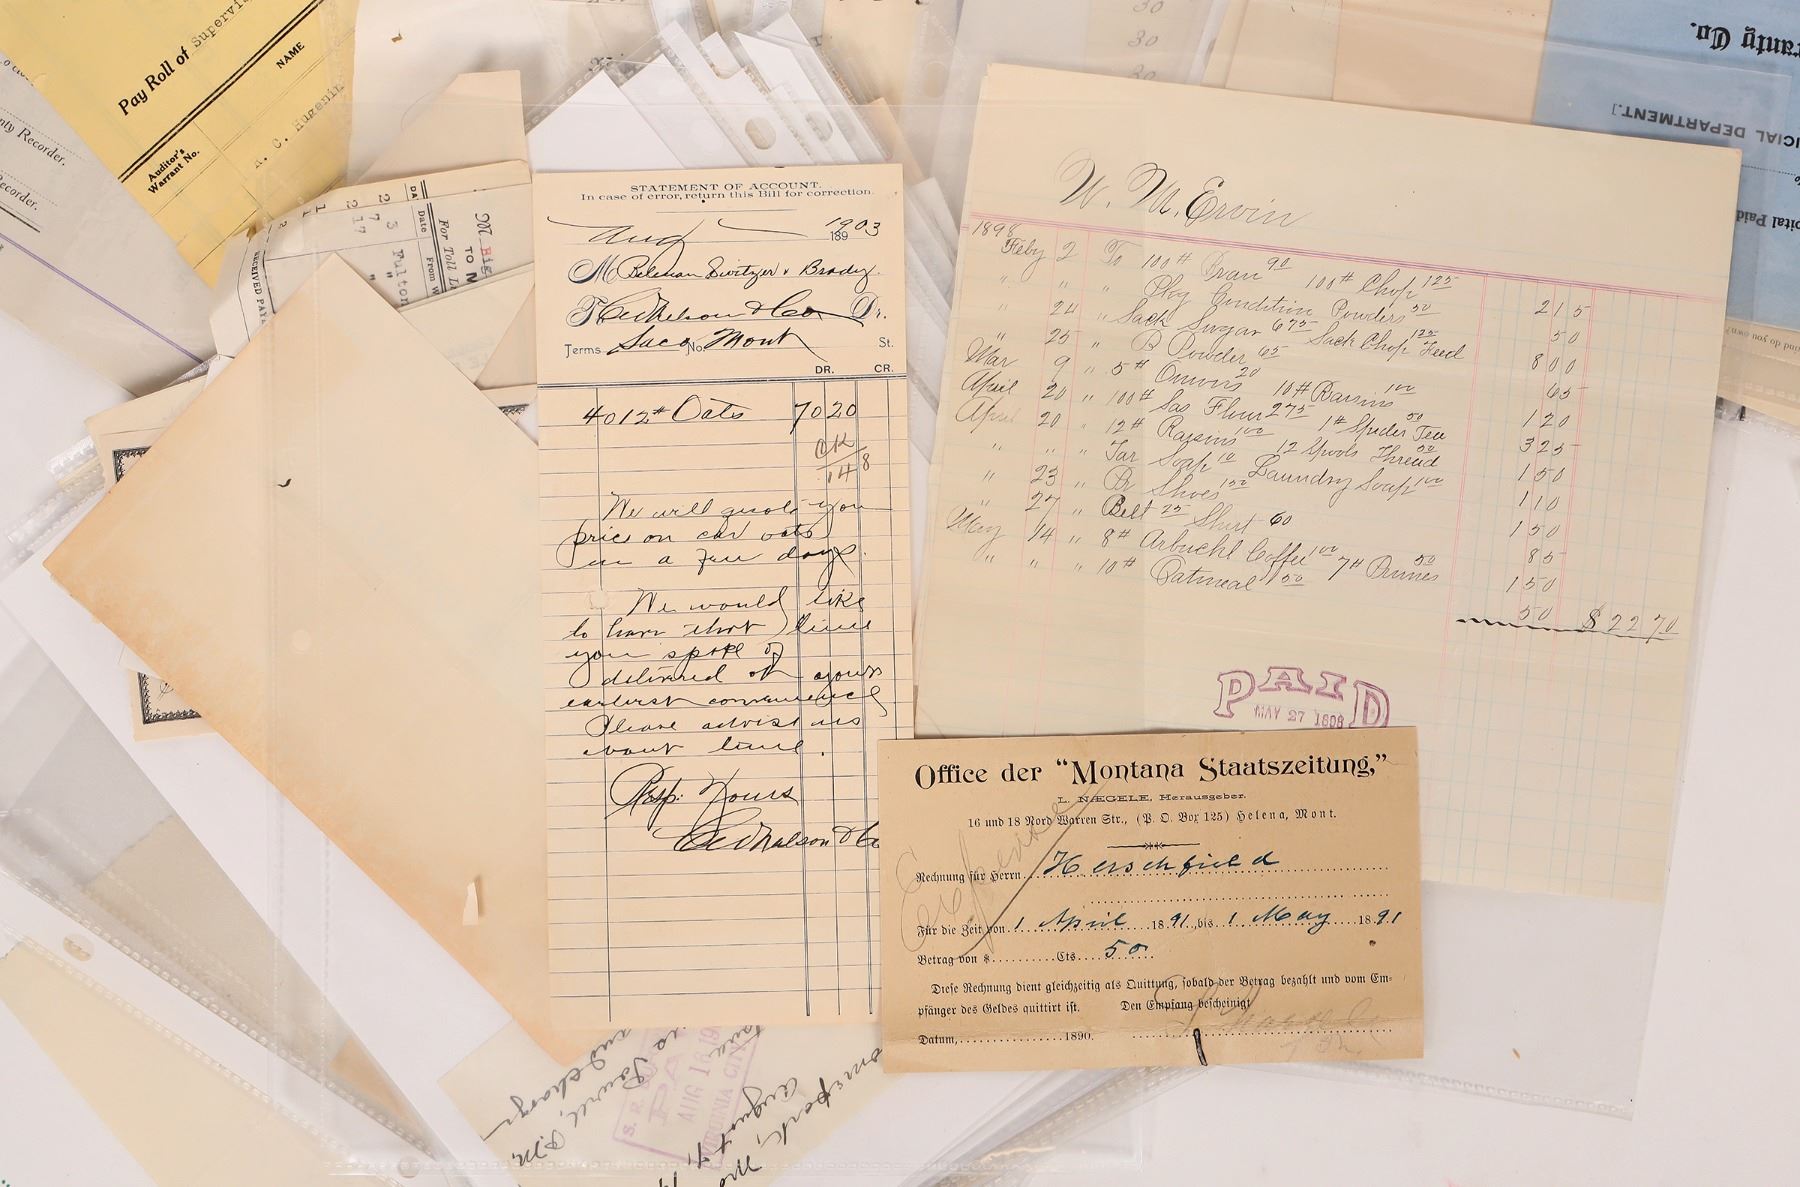 Pay Roll of Supervis
NAME
Auditor's
Warrant No.
H. C. Hugenin
nty Recorder.
Recorder.
RECEIVED PAY
Date
From W
For Toll L
TO
Fulton
STATEMENT OF ACCOUNT.
In case of error, return this Bill for correction.
Aug 1903
189
M Coleman Switzer & Brady.
To
& Co Dr.
Terms Saco No. Mont St.
DR. CR.
4012# Oats 70 20
CK
148
We will quote you
price on car oats
in a few days.
We would like
to have that lime
you spoke of
delivered at your
earliest convenience
Please advise us
about lime.
Resp. Yours
& Co
W. M. Ervin
1898
Feby 2 To 100# Bran 90 100# Chop 125 2 15
" " " Pkg Condition Powders 50 50
" 24 " Sack Sugar 675 Sack Chop Feed 125 8 00
" 25 " B Powder 65 65
Mar 9 " 5# Onions 20 10# Raisins 100 1 20
April 20 " 100# Sas Flour 275 1# Spider Tea 50 3 25
April 20 " 12# Raisins 100 12 Spools Thread 50 1 50
" " " Tar Soap 10 Laundry Soap 100 1 10
" 23 " Pr Shoes 150 1 50
" 27 " Belt 25 Shirt 60 85
May 14 " 8# Arbuckl Coffee 100 7# Prunes 50 1 50
" " " 10# Oatmeal 50 50 $22 70
PAID
MAY 27 1898
Office der “Montana Staatszeitung,”
L. NÆGELE, Herausgeber.
16 und 18 Nord Warren Str., (P. O. Box 125) Helena, Mont.
Expense
Rechnung für Herrn Herschfield
Für die Zeit von 1 April 1891, bis 1 May 1891
Betrag von $ Cts. 50
Diese Rechnung dient gleichzeitig als Quittung, sobald der Betrag bezahlt und vom Em-
pfänger des Geldes quittirt ist. Den Empfang bescheinigt
Datum, 1890.
ranty Co.
ICIAL DEPARTMENT.]
pital Paid
nd do you own?
30
30
30
S. R.
PA
AUG 18 19
VIRGINIA CITY
August 4,
and charge